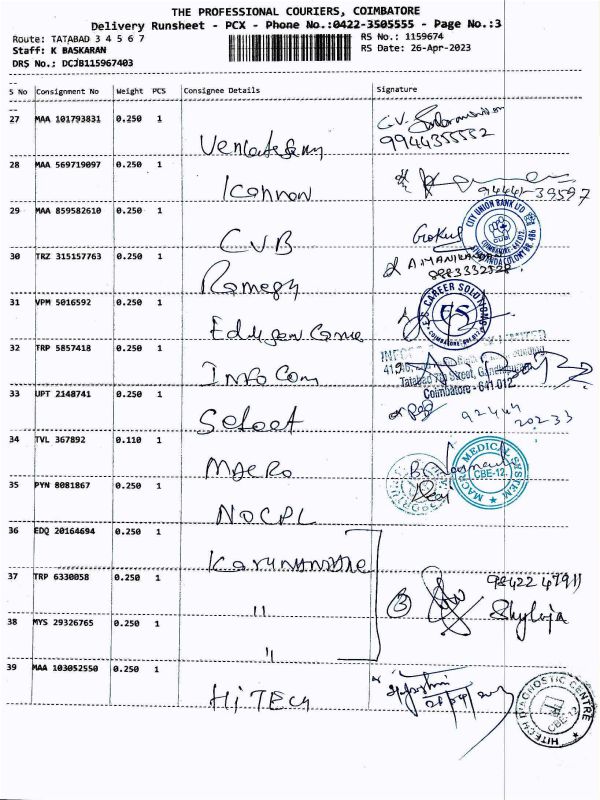 THE PROFESSIONAL COURIERS, COIMBATORE
Delivery Runsheet - PCX - Phone No.:0422-3505555 - Page No.:3
Route: TATABAD 3 4 5 6 7
RS No.: 1159674
Staff: K BASKARAN
RS Date: 26-Apr-2023
DRS No.: DCJB115967403
S No Consignment No Weight PCS Consignee Details Signature
27 MAA 101793831 0.250 1
G.V.
9944355552
28 MAA 569719097 0.250 1 Kannan
94441-39597
29 MAA 859582610 0.250 1 CUB Gokul
CITY UNION BANK LTD
COIMBATORE-641 012.
30 TRZ 315157763 0.250 1 Ramesh
31 VPM 5016592 0.250 1
CAREER SOLU
ES
32 TRP 5857418 0.250 1 Infocom
Tatabad 7th Street,
Coimbatore - 641 012.
33 UPT 2148741 0.250 1 Select
92444
20233
34 TVL 367892 0.110 1 MACRO
MACRO MEDICAL SYSTEM
CBE-12.
35 PYN 8081867 0.250 1 NOCPL
36 EDQ 20164694 0.250 1
37 TRP 6330058 0.250 1 "
3
98422 47911
Shyloja
38 MYS 29326765 0.250 1 "
39 MAA 103052550 0.250 1 HiTECH
HITECH DIAGNOSTIC CENTRE
CBE-12